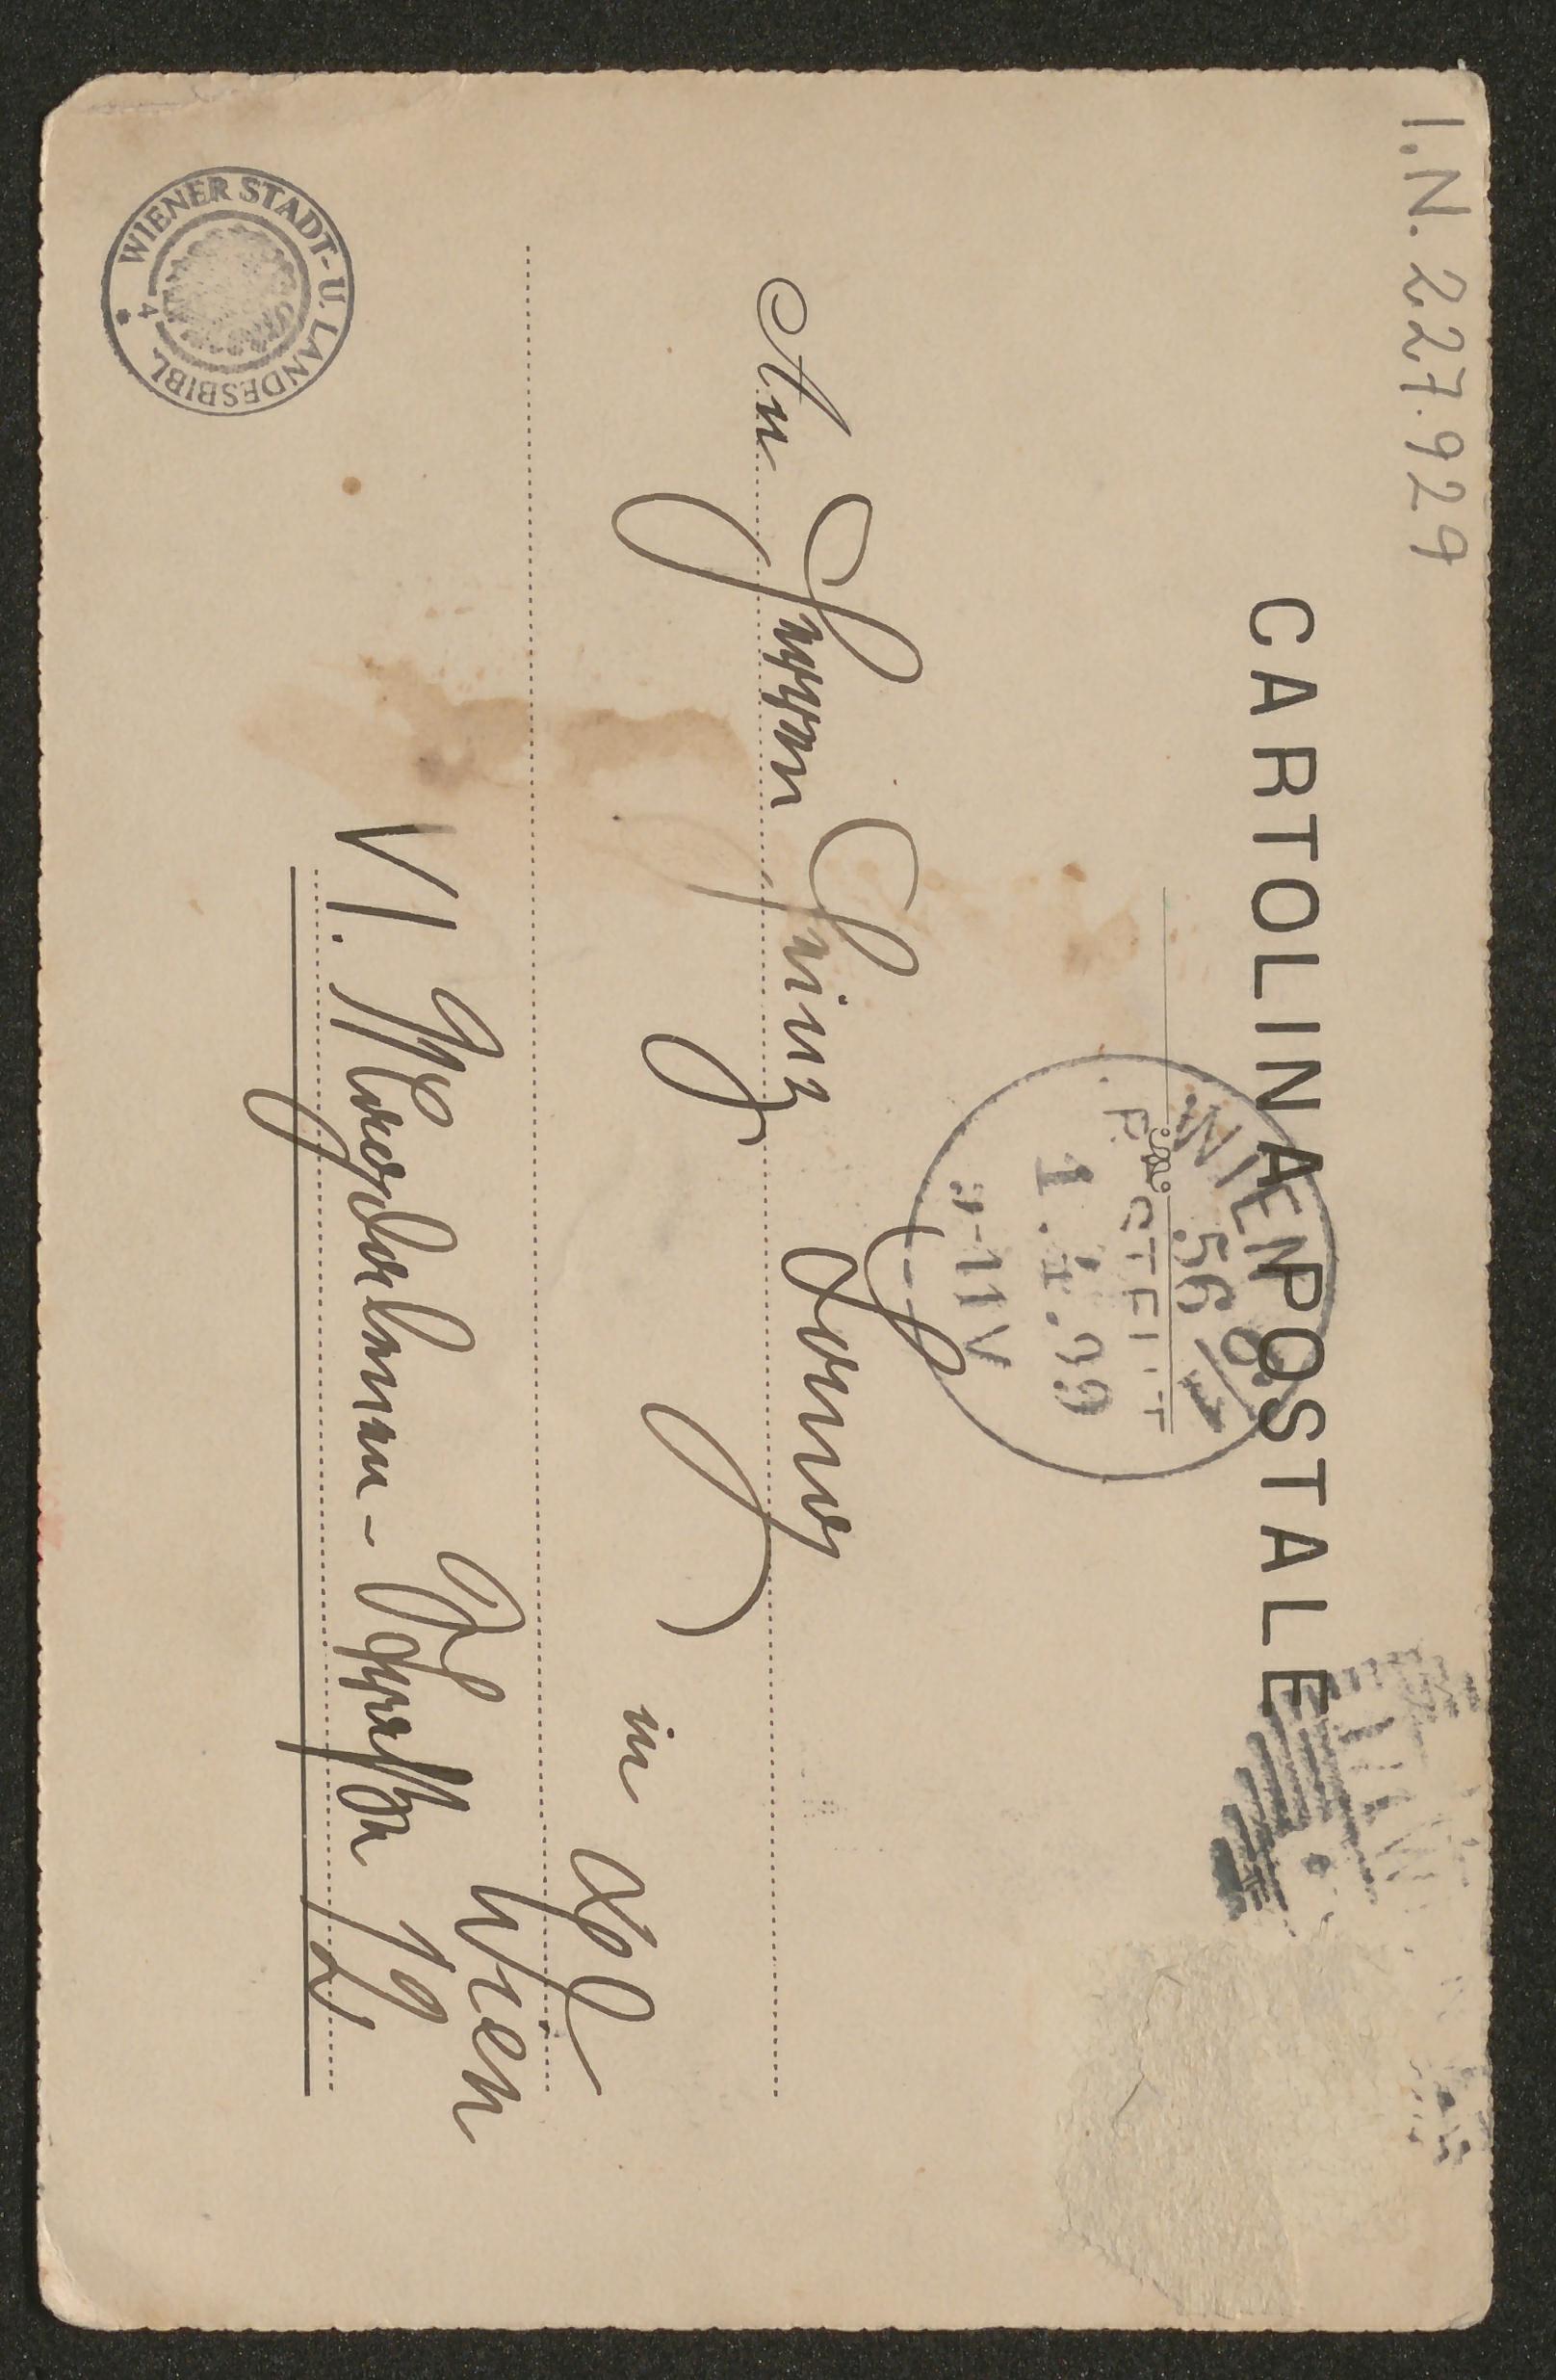 I.N. 227.929
CARTOLINA POSTALE
WIEN
56
BESTELLT
1.4.99
9-11V
An Herrn
in
Wien
VI. Magdalenen-Straße
WIENER STADT-U. LANDESBIBL.